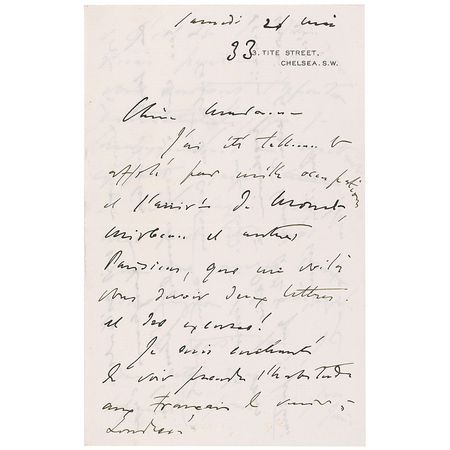 Samedi 28 mai
33
3, TITE STREET,
CHELSEA. S.W.
Chère Madame
J'ai été tellement
affolé par mille occupations
et l'arrivée de Monet,
Mirbeau et autres
Parisiens, que me voilà
vous devoir deux lettres.
et des excuses!
Je suis enchanté
de voir prendre l'habitude
aux Français de venir à
Londres